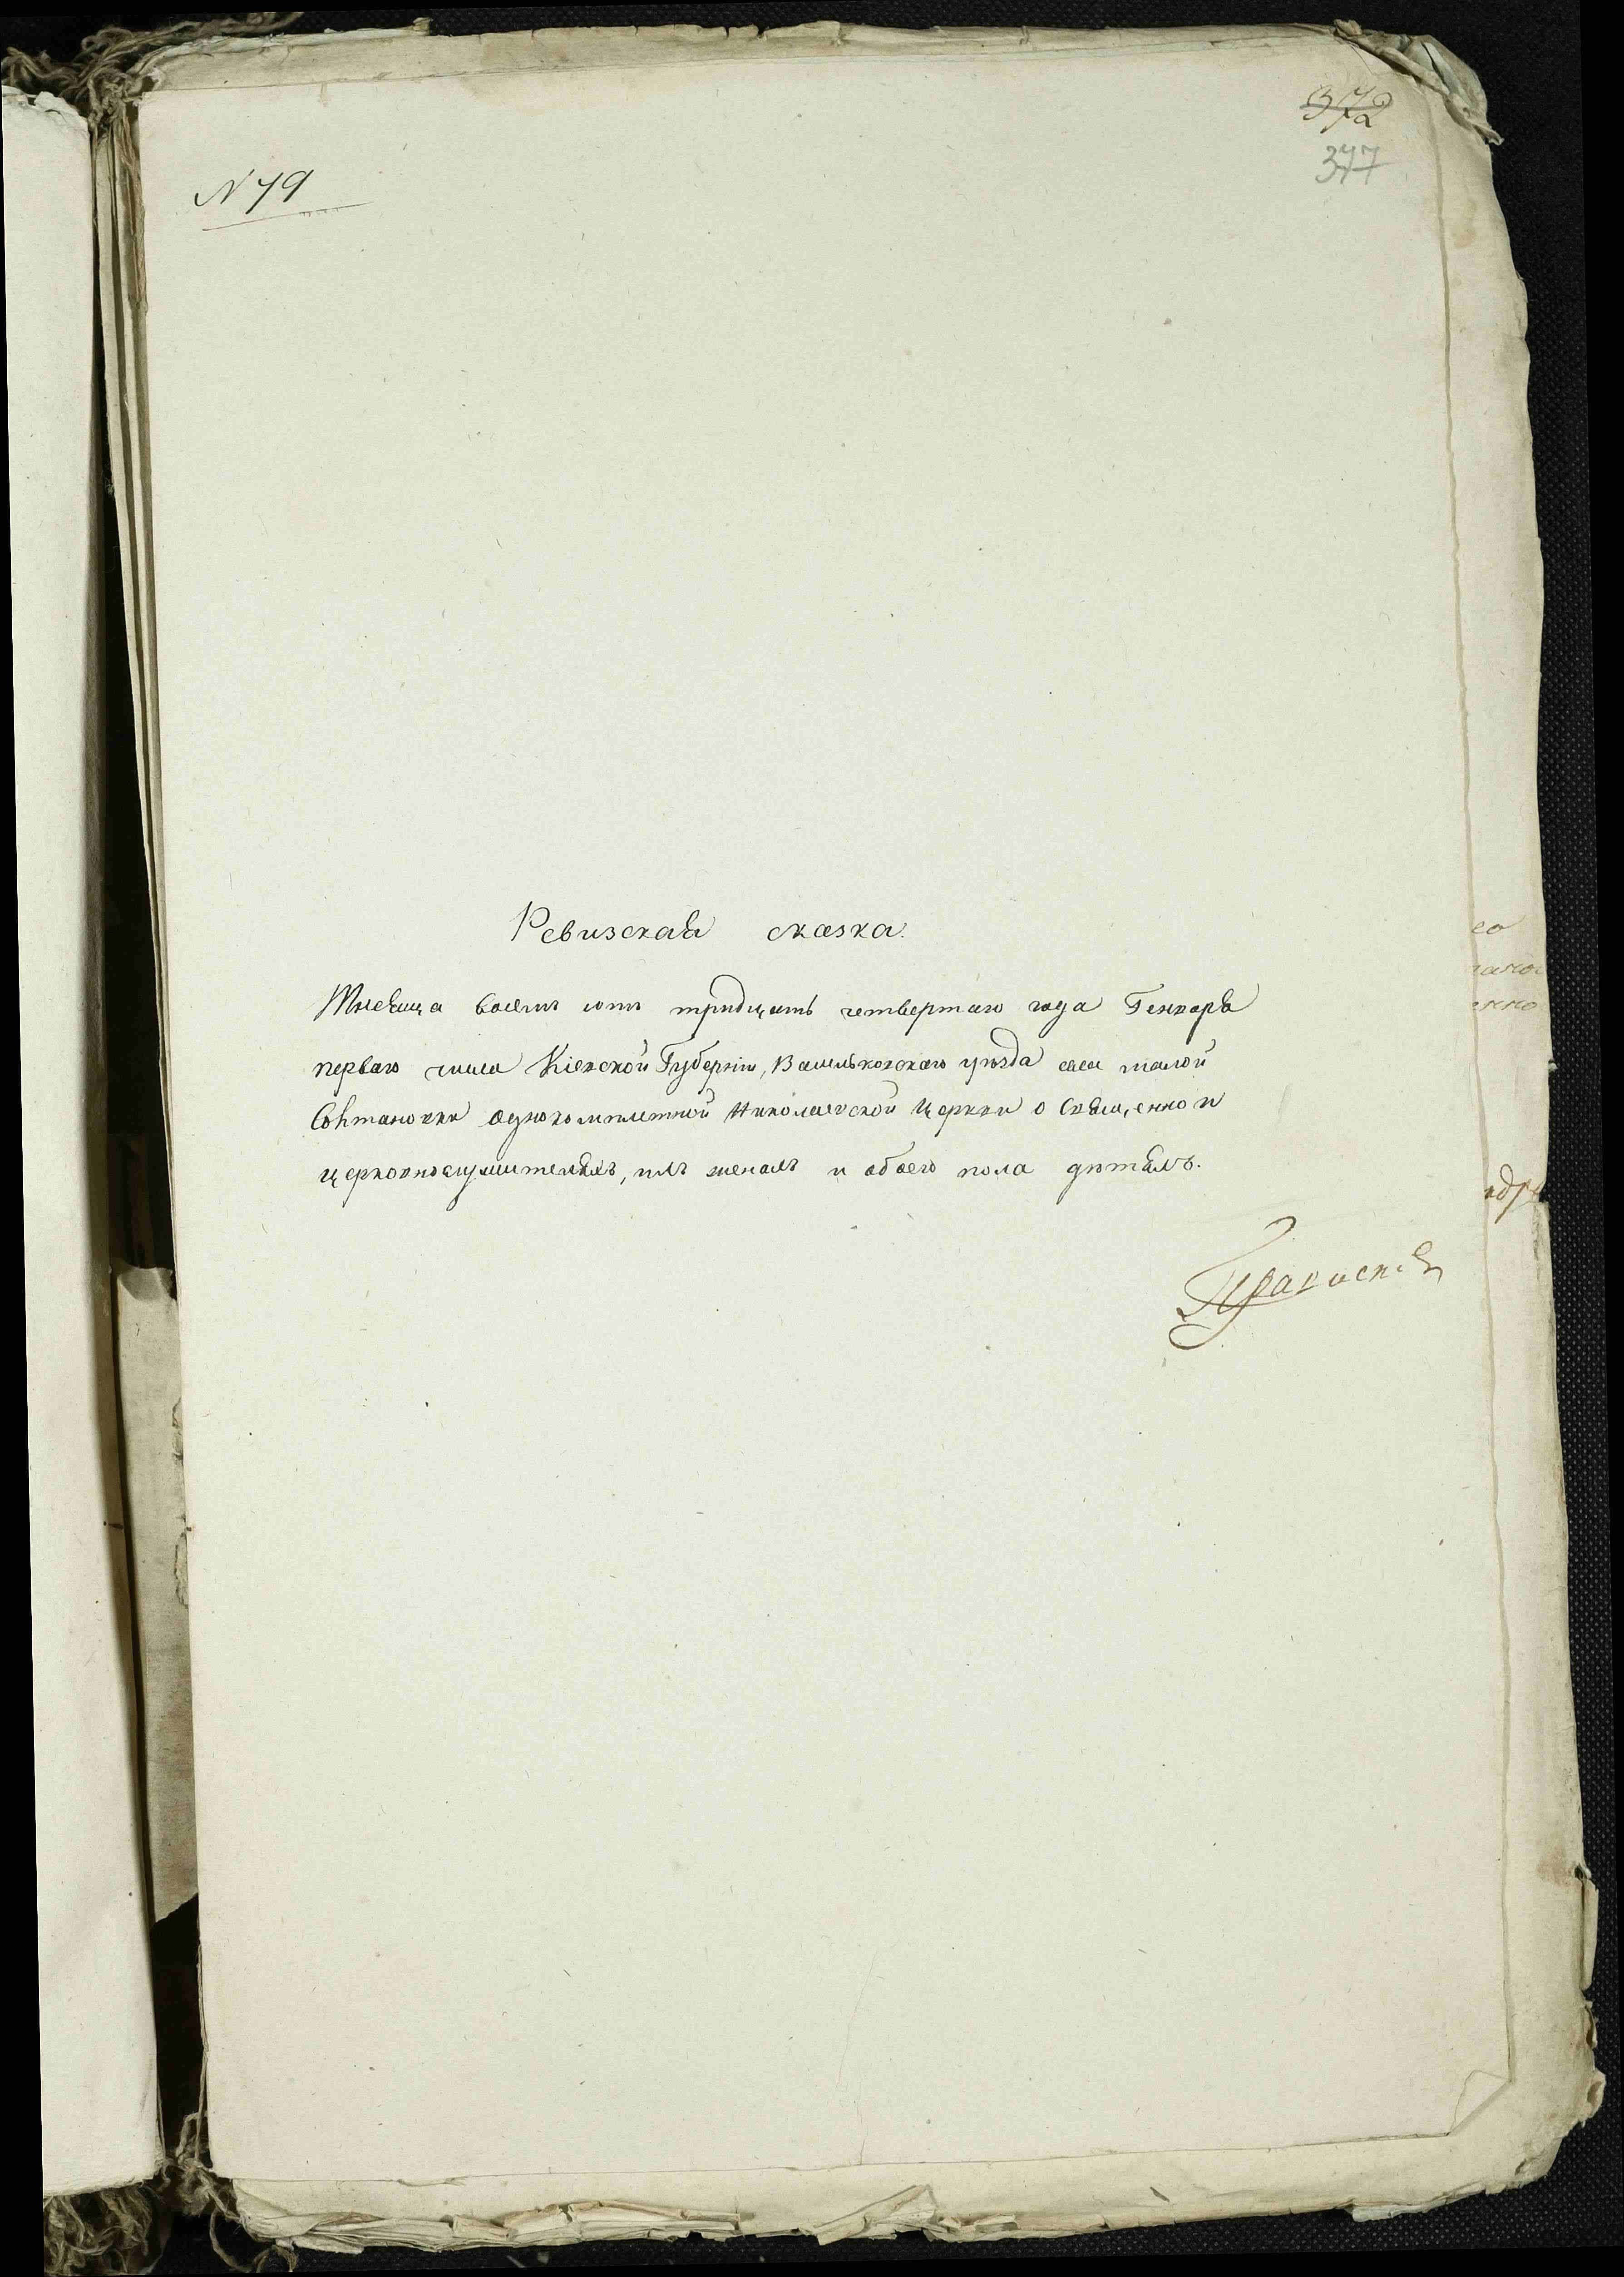 372
377
N 79
Ревизская сказка.
Тысяща восемъ сотъ тридцать четвертаго года Генваря
перваго числа Кіевской Губерніи, Васильковскаго уѣзда села малой
Солтановки однокомплетной Николаевской Церкви о Священно и
церковнослужителяхъ, ихъ женахъ и обоего пола дѣтяхъ.